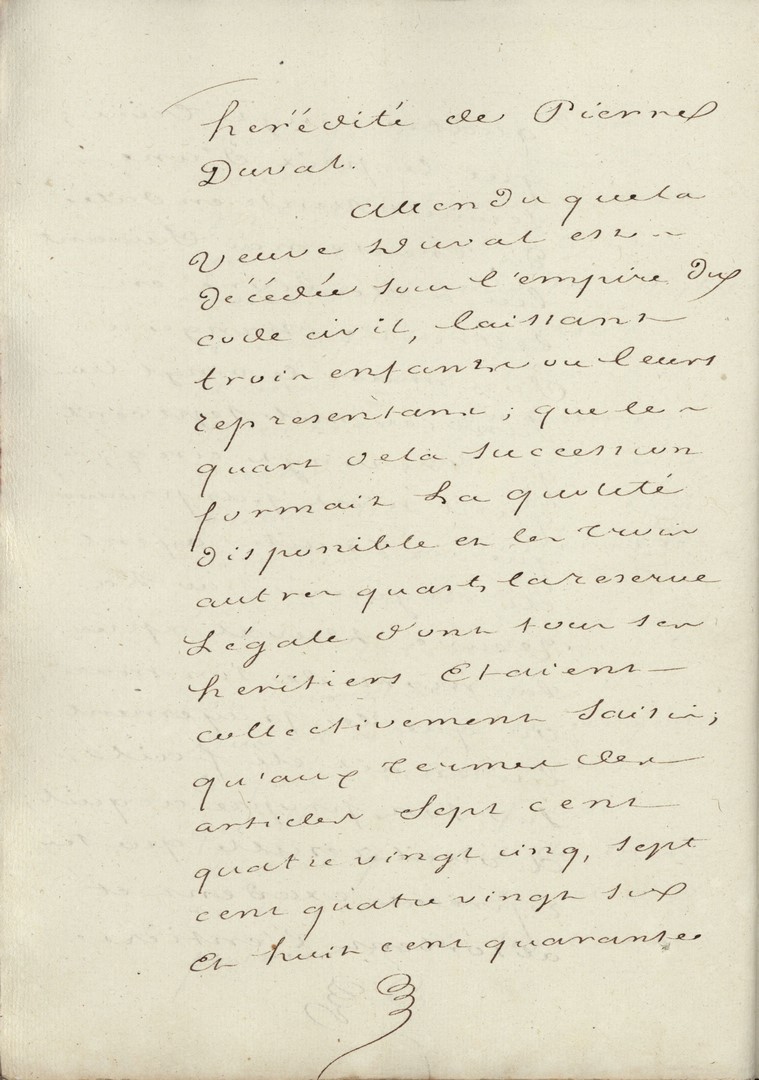 heréditè de Pierre
Duval.
Attendu que la
Veuve Duval est
décédée sous l'empire du
code civil, laissant
trois enfants ou leurs
représentans ; que le
quart de la succession
formait La quotité
disponible et les trois
autres quarts la reserve
Légale dont tous ses
heritiers Etaient
collectivement Saisis ;
qu'aux termes des
articles Sept cent
quatre vingt cinq, Sept
cent quatre vingt six
Et huit cent quarante